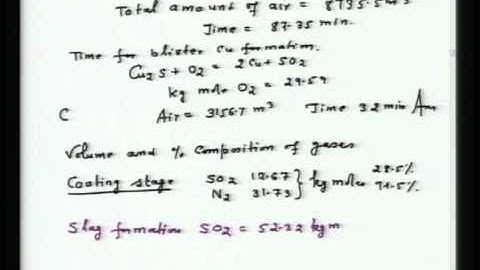 Total amount of air = 8735.5 m3
Time = 87.35 min.
Time for blister Cu formation.
Cu2S + O2 = 2Cu + SO2
kg mole O2 = 29.59
C Air = 3156.7 m3 Time 32 min Am
Volume and % Composition of gases
Coating stage SO2 12.67 } kg moles 28.5%
N2 31.73 71.5%
Slag formation SO2 = 52.32 kgm